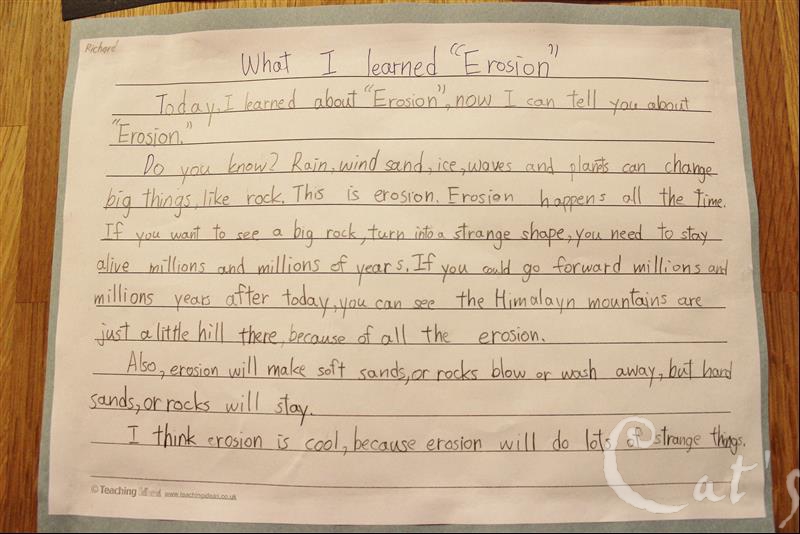 Richard
What I learned "Erosion"
Today, I learned about "Erosion", now I can tell you about
"Erosion."
Do you know? Rain, wind sand, ice, waves and planets can change
big things, like rock. This is erosion. Erosion happens all the time.
If you want to see a big rock, turn into a strange shape, you need to stay
alive millions and millions of years. If you could go forward millions and
millions years after today, you can see the Himalayn mountains are
just a little hill there, because of all the erosion.
Also, erosion will make soft sands, or rocks blow or wash away, but hard
sands, or rocks will stay.
I think erosion is cool, because erosion will do lots of strange things.
© Teaching Ideas www.teachingideas.co.uk
Cat's